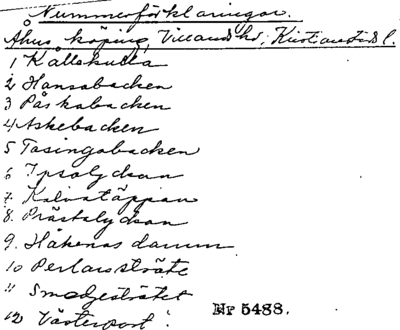 Nummerförklaringar.
Åhus köping, Villands hd, Kristianstads l.
1 Källekulla
2 Hansabacken
3 Påskabacken
4 Askebacken
5 Tasingabacken
6 Ipsalyckan
7. Kalvatäppan
8. Prästalyckan
9. Håkenas damm
10 Perlarssträte
11 Smedjesträtet
12 Västerport
Nr 5488.